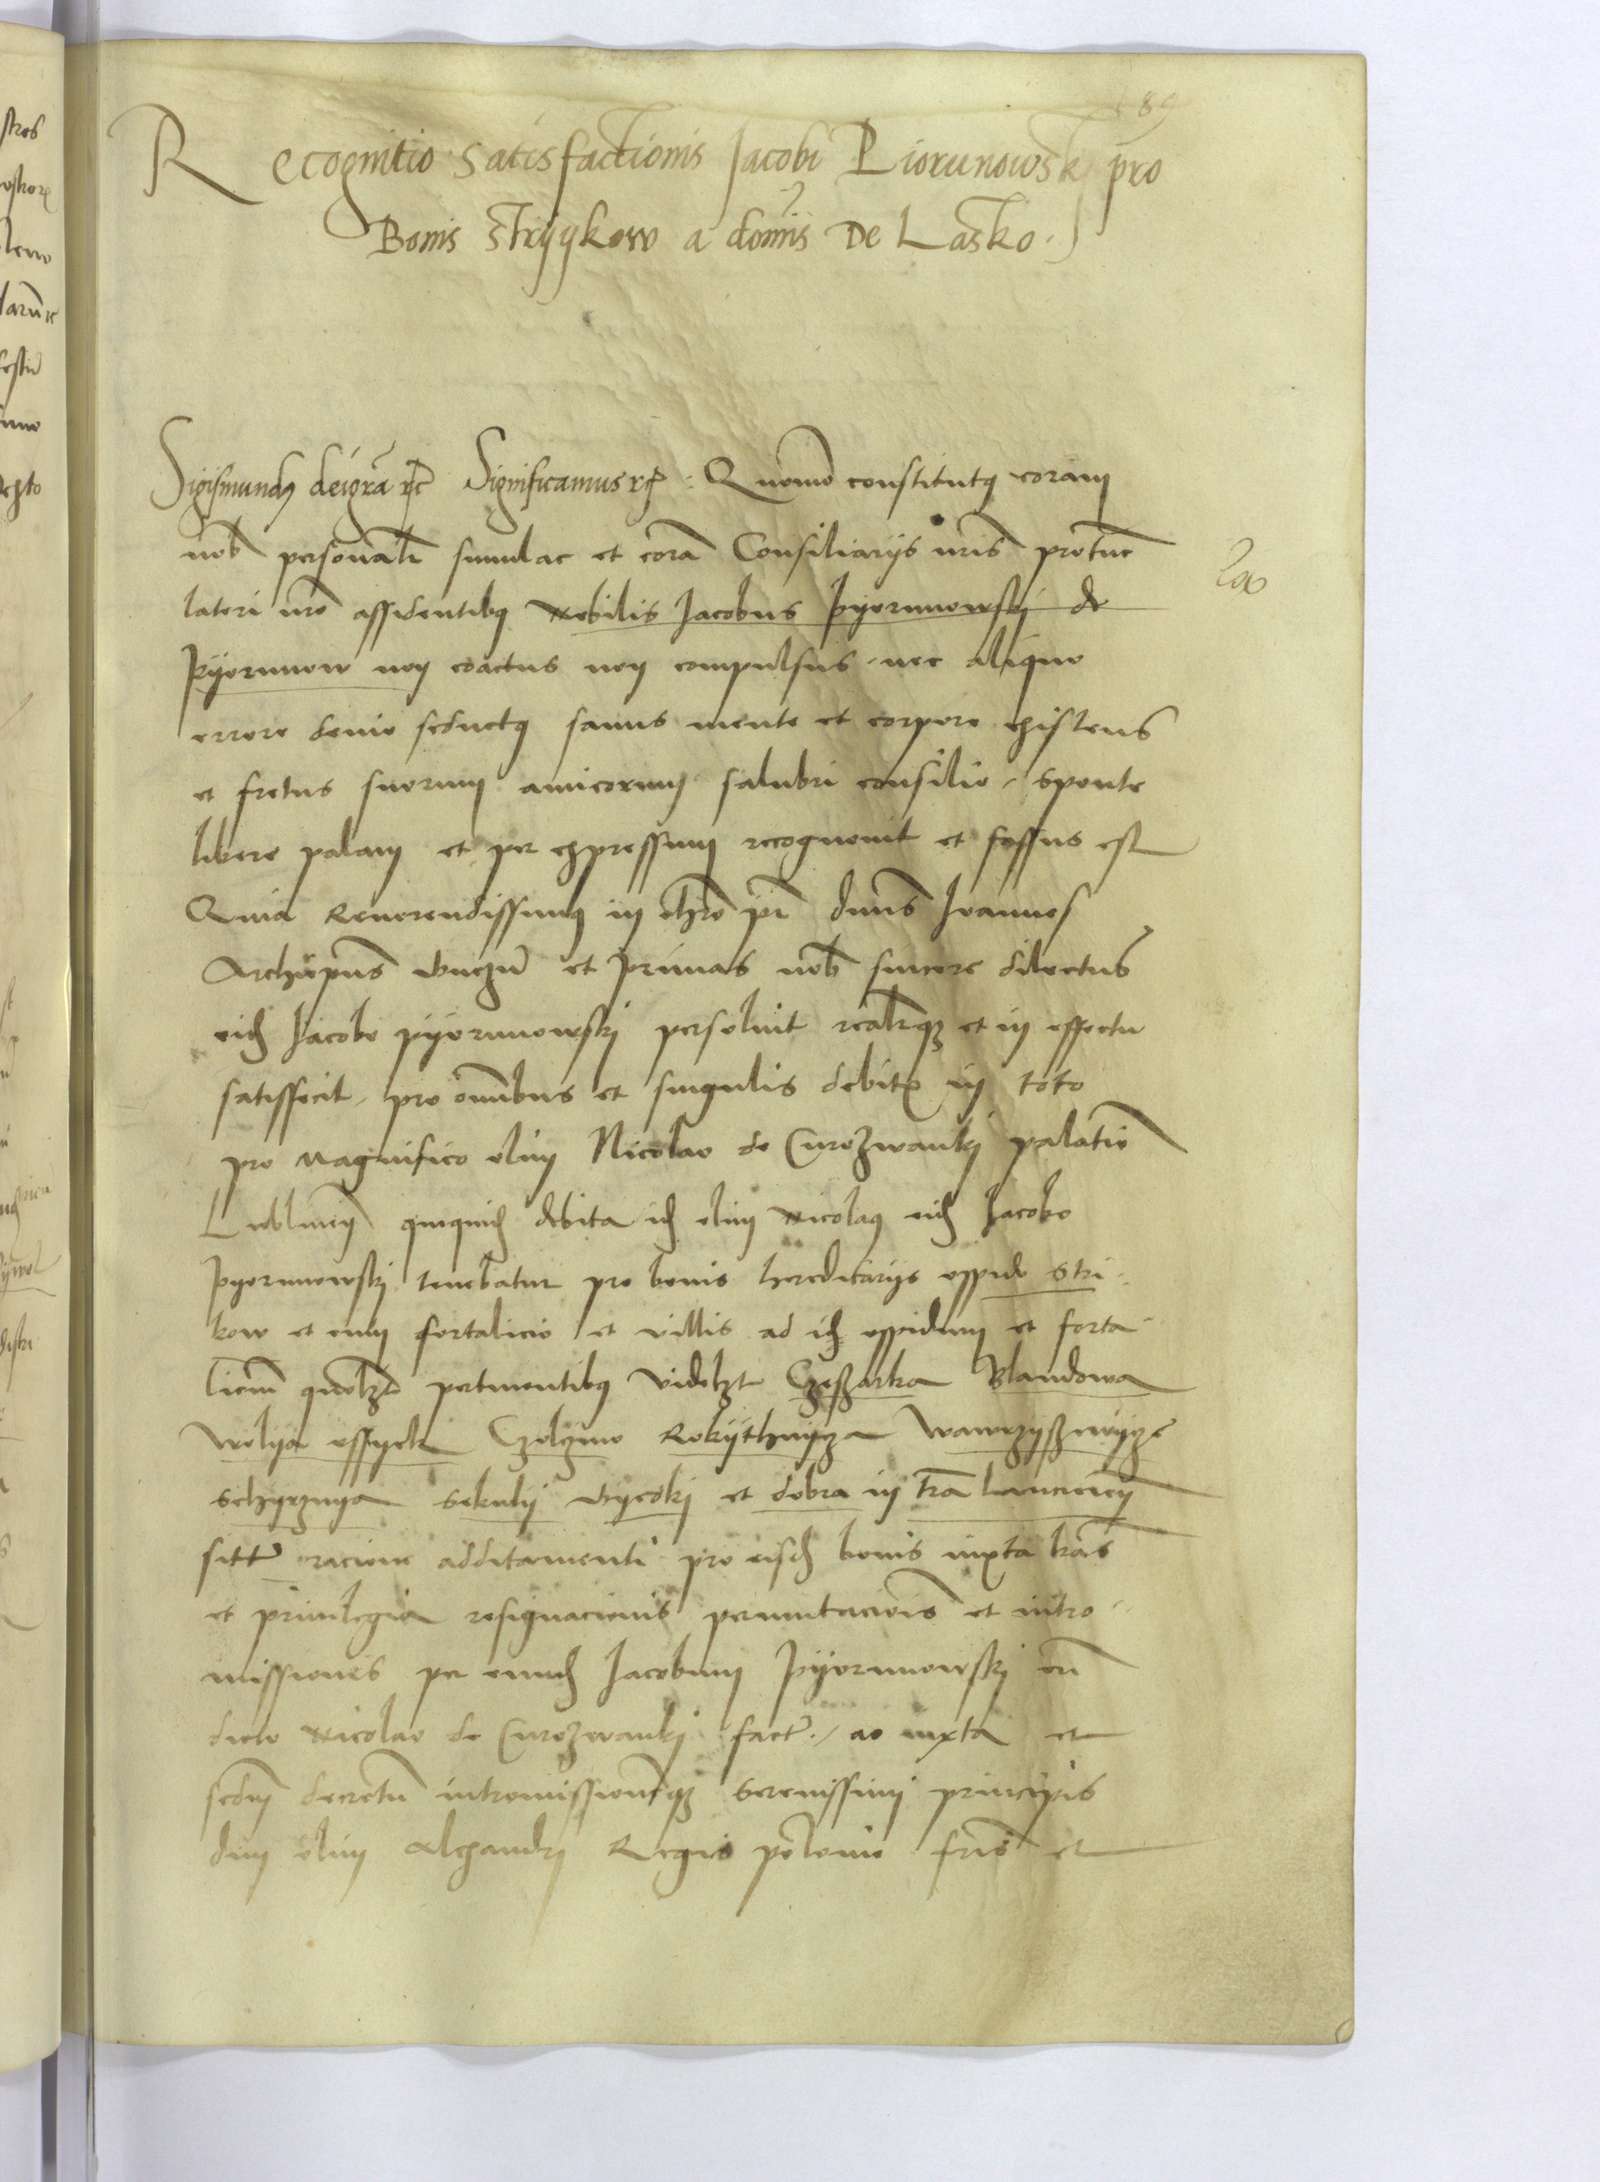 89
Recognitio Satisfactionis Jacobi Piorunowskj pro
Bonis Stryykow a domis De Lasko.
Sigismundus dei gra etc Significamus etc. Quomo constitutus coram
nob personalr simulac et cora Consiliariis nris protunc
lateri nro assidentibus Nobilis Jacobus Pyorunowskj de
Pyorunow non coactus non compulsus nec aliquo
errore devio seductus sanus mente et corpore existens
et fretus suorum amicorum salubri consilio sponte
libere palam et per expressum recognovit et fassus est
Quia Reverendissimus in chro pr dnus Joannes
Archiepus Gnezn et primas nob sincere dilectus
eid Jacobo pyorunowskj persolvit realrque et in effectu
satisfecit pro omnibus et singulis debitis in toto
pro Magnifico olim Nicolao de Curozwankj palatio
Lublinen quequid debita id olim Nicolaus eid Jacobo
Pyorunowskj tenebatur pro bonis hereditariis oppido Stri
kow et cum fortalicio et villis ad id oppidum et forta
licium quolzt pertinentibus videlzt Czeßarka Blandowa
Wolya Czolczno Rokythnycza Wawrzyßewycze
Schyrznya Sekulij et dobra in tra Lancicien
sitt racione additamenti pro eisd bonis iuxta lras
et privilegia resignacionis permutacionis et intro
missiones per eund Jacobum Pyorunowskj cu
dicto Nicolao de Curozwankj fact. ac iuxta et
secdm decretu intromissionemque Serenissimi principis
dni olim Alexandrj Regis polonie fris et